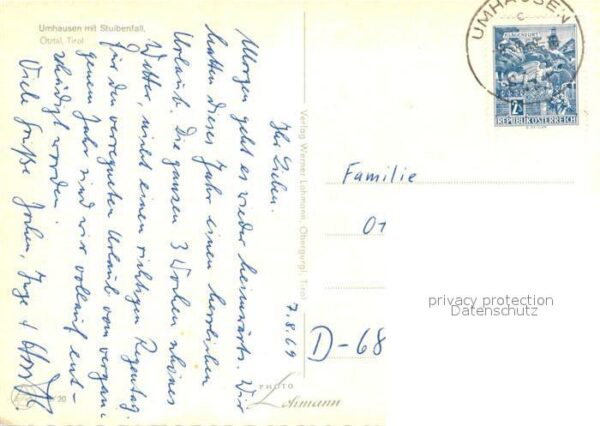 Umhausen mit Stuibenfall,
Ötztal, Tirol
7.8.69
Ihr Lieben.
Morgen geht es wieder heimwärts. Wir
hatten dieses Jahr einen herrlichen
Urlaub. Die ganzen 3 Wochen schönes
Wetter, nicht einen richtigen Regentag.
Für den verregneten Urlaub vom vergan-
genen Jahr sind wir vollauf ent-
schädigt worden.
Viele Grüße Jochen, Inge +
Verlag Werner Lohmann, Obergurgl, Tirol
PHOTO
Lohmann
20
UMHAUSEN
c
KLAGENFURT
2
S
REPUBLIK ÖSTERREICH
Familie
01
D-68
privacy protection
Datenschutz